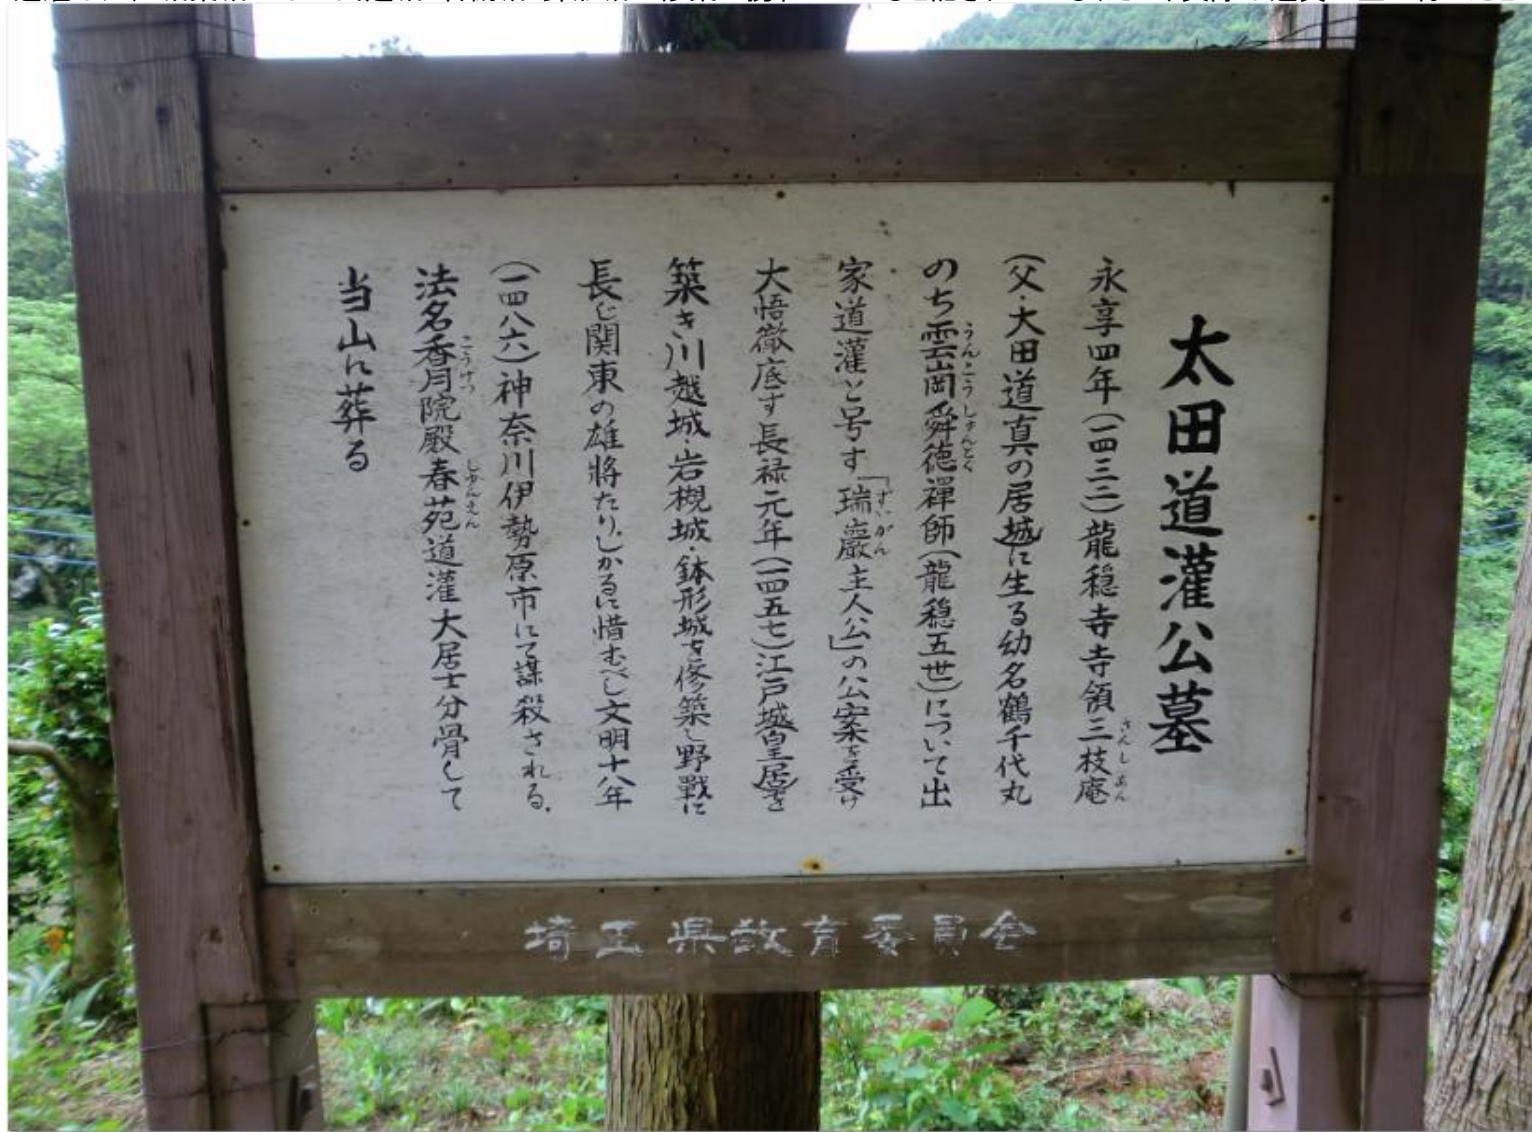 太田道灌公墓
永享四年(一四三二)龍穏寺寺領三枝庵
(父・大田道真の居城)に生る幼名鶴千代丸
のち雲崗舜徳禅師(龍穏五世)について出
家道灌と号す「瑞巖主人公」の公案を受け
大悟徹底す長禄元年(一四五七)江戸城(皇居)を
築き川越城・岩槻城・鉢形城を修築し野戦に
長じ関東の雄将たり、しかるに惜むべし文明十八年
(一四八六)神奈川伊勢原市にて謀殺される。
法名香月院殿春苑道灌大居士分骨して
当山に葬る
埼玉県教育委員会